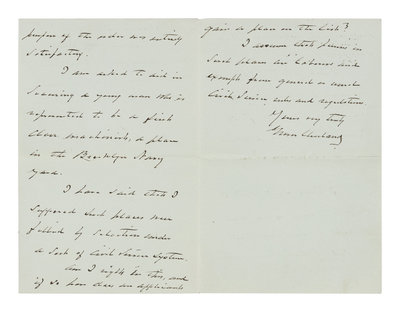 purpose of the order was entirely
satisfactory.
I am asked to aid in
securing a young man who is
represented to be a first
class machinist, a place
in the Brooklyn Navy
yard.
I have said that I
supposed such places were
filled by selection under
a sort of Civil Service system.
Am I right in this, and
if so how does an applicant
gain a place on the list?
I assume that persons in
such places are laborers and
exempt from general or usual
Civil Service rules and regulations.
Yours very truly
Grover Cleveland